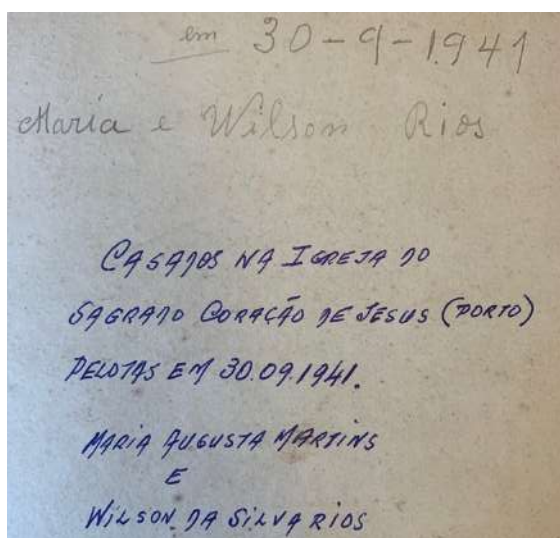 em 30-9-1941
Maria e Wilson Rios
CASADOS NA IGREJA DO
SAGRADO CORAÇÃO DE JESUS (PORTO)
PELOTAS EM 30.09.1941.
MARIA AUGUSTA MARTINS
E
WILSON DA SILVA RIOS